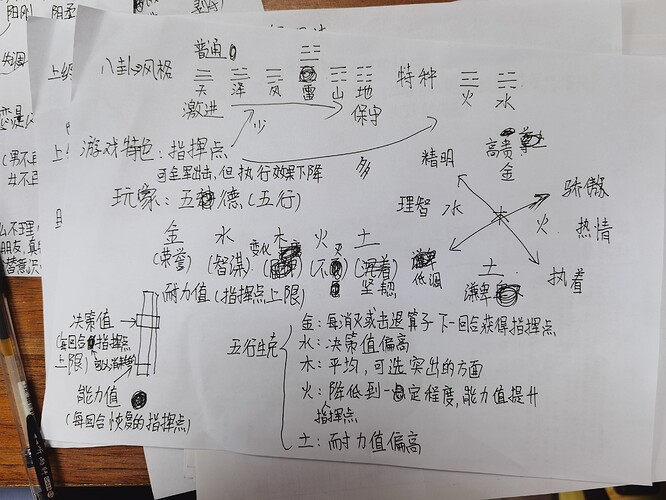 八卦→风格
普通
天 泽 风 雷 山 地
激进 保守
特种
火 水
游戏特色:指挥点
少
多
可全军出击,但执行效果下降
玩家:五德(五行)
金 水 木 火 土
(荣誉) (智谋) 变化 (不灭) 坚韧
耐力值(指挥点上限)
精明 高贵
金
骄傲
理智 水 木 火 热情
低调 土 执着
谦卑
决策值
(每回合指挥点
上限)
能力值
(每回合恢复的指挥点)
五行生克
金:每消灭或击退算子下一回合获得指挥点
水:决策值偏高
木:平均,可选突出的方面
火:降低到一定程度,能力值提升
指挥点
土:耐力值偏高